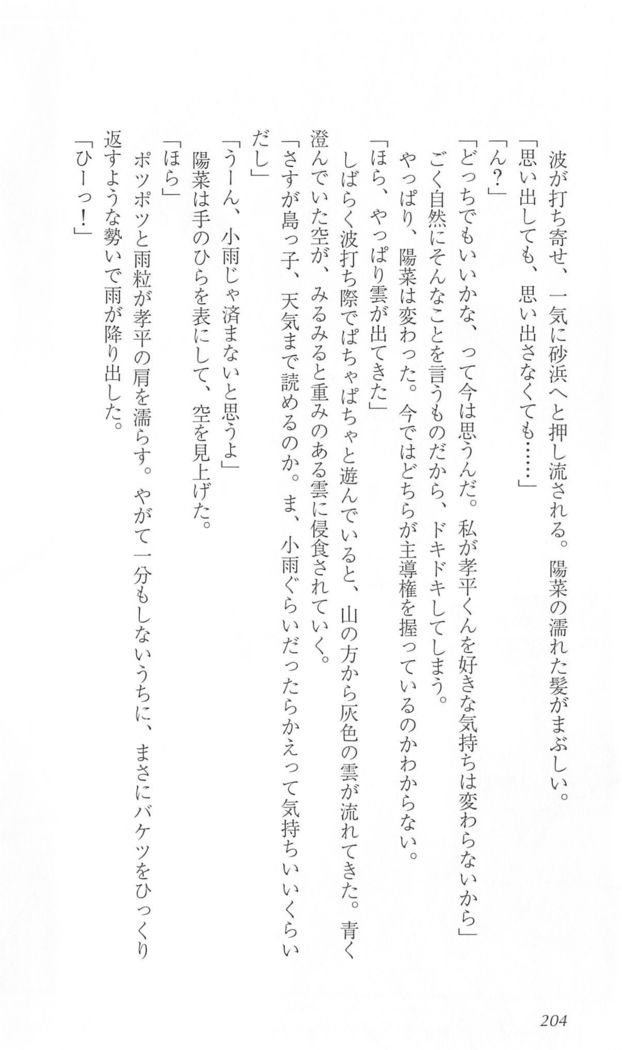 波が打ち寄せ、一気に砂浜へと押し流される。陽菜の濡れた髪がまぶしい。
「思い出しても、思い出さなくても……」
「ん？」
「どっちでもいいかな、って今は思うんだ。私が孝平くんを好きな気持ちは変わらないから」
ごく自然にそんなことを言うものだから、ドキドキしてしまう。
やっぱり、陽菜は変わった。今ではどちらが主導権を握っているのかわからない。
「ほら、やっぱり雲が出てきた」
しばらく波打ち際でぱちゃぱちゃと遊んでいると、山の方から灰色の雲が流れてきた。青く
澄んでいた空が、みるみると重みのある雲に侵食されていく。
「さすが島っ子、天気まで読めるのか。ま、小雨ぐらいだったらかえって気持ちいいくらい
だし」
「うーん、小雨じゃ済まないと思うよ」
陽菜は手のひらを表にして、空を見上げた。
「ほら」
ポツポツと雨粒が孝平の肩を濡らす。やがて一分もしないうちに、まさにバケツをひっくり
返すような勢いで雨が降り出した。
「ひーっ！」
204